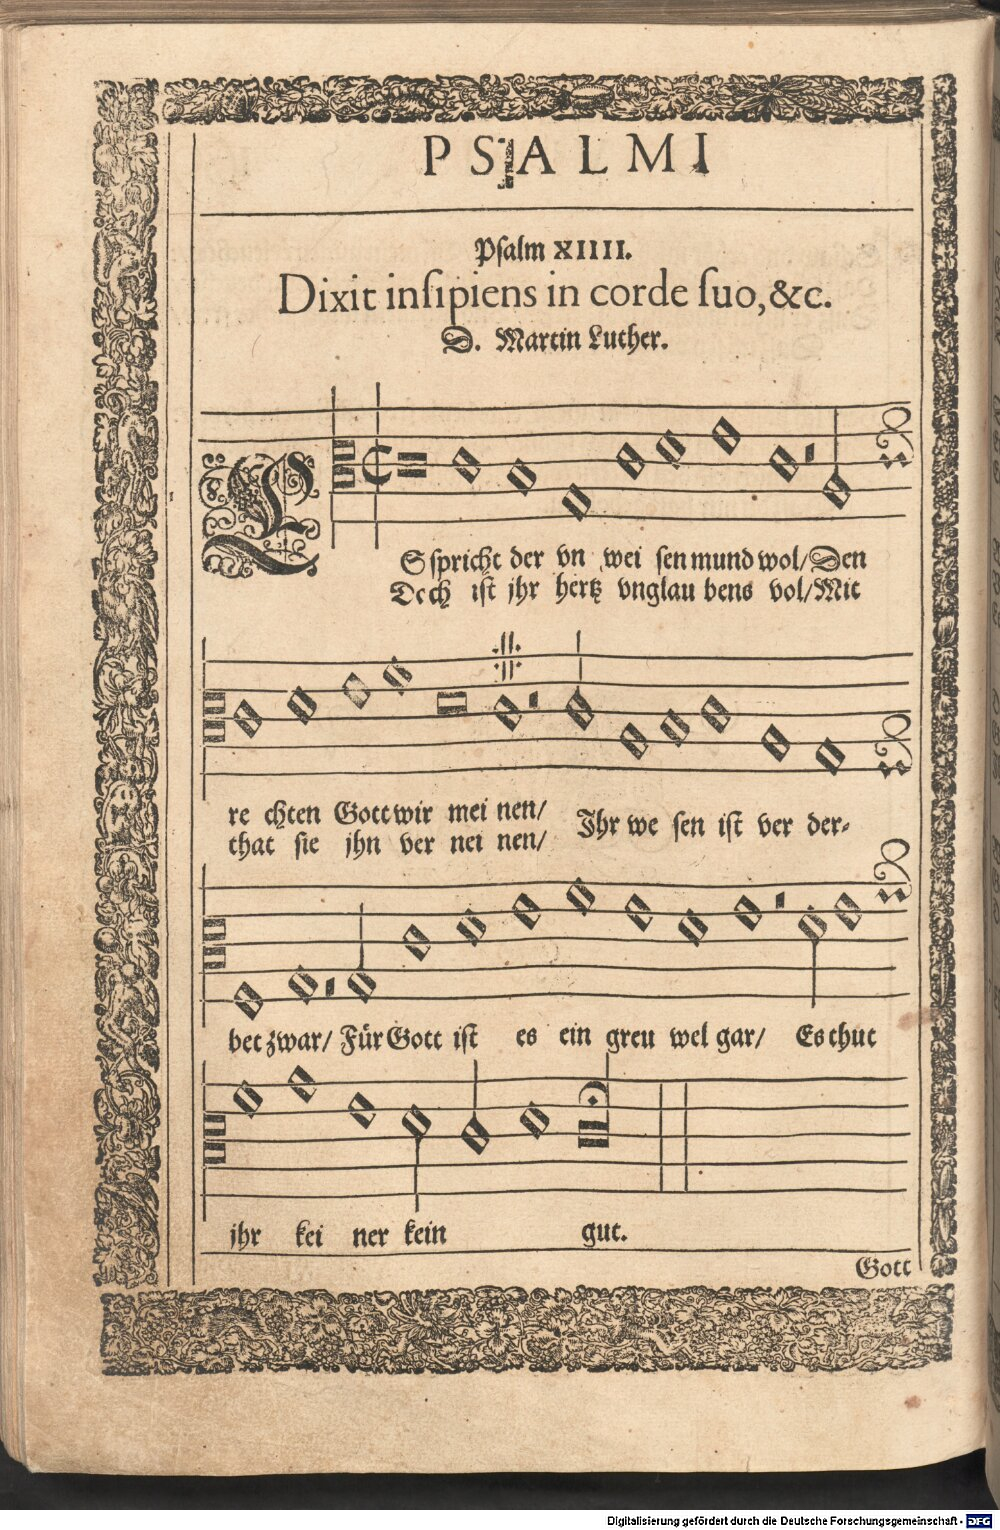 PSALMI
Psalm XIIII.
Dixit insipiens in corde suo, &c.
D. Martin Luther.
ES spricht der vn wei sen mund wol/ Den
Doch ist jhr hertz vnglau bens vol/ Mit
re chten Gott wir mei nen/
that sie jhn ver nei nen/
Jhr we sen ist ver der-
bet zwar/ Für Gott ist es ein greu wel gar/ Es thut
jhr kei ner kein gut.
Gott
Digitalisierung gefördert durch die Deutsche Forschungsgemeinschaft - DFG